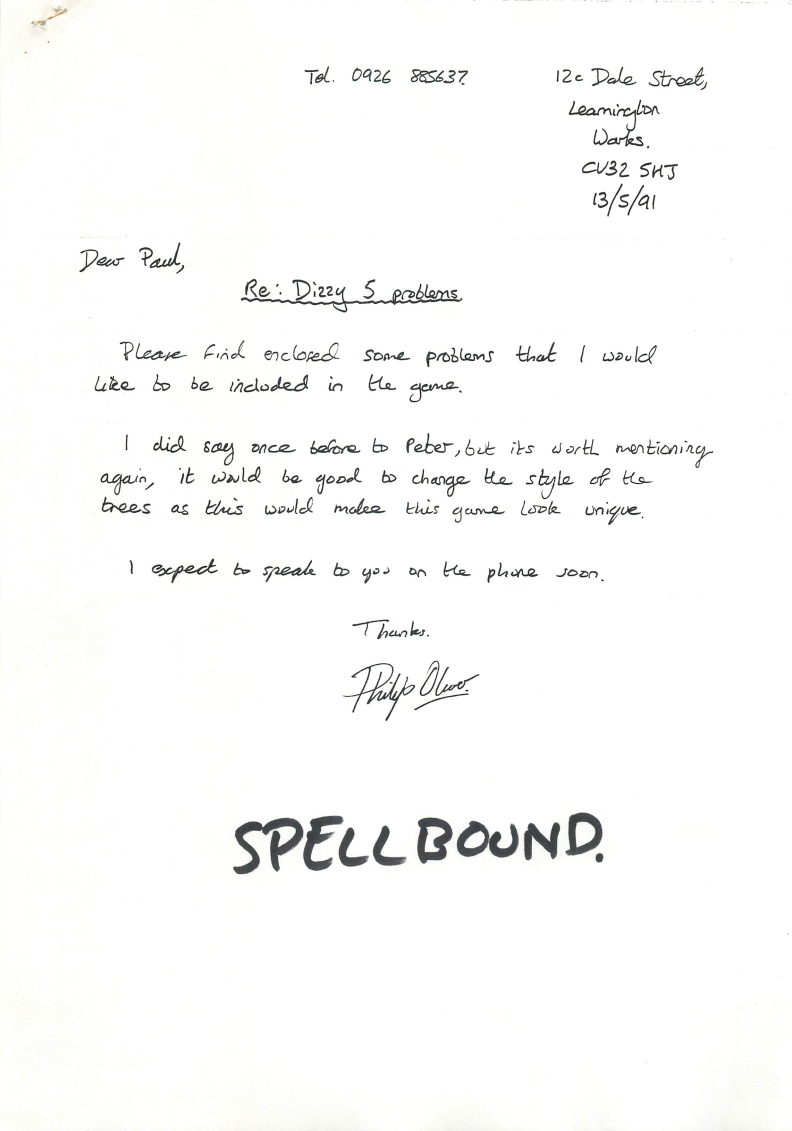 Tel. 0926 885637.
12c Dale Street,
Leamington
Warks.
CV32 5HJ
13/5/91
Dear Paul,
Re: Dizzy 5 problems.
Please find enclosed some problems that I would
like to be included in the game.
I did say once before to Peter, but its worth mentioning
again, it would be good to change the style of the
trees as this would make this game look unique.
I expect to speak to you on the phone soon.
Thanks.
Philip Oliver.
SPELLBOUND.